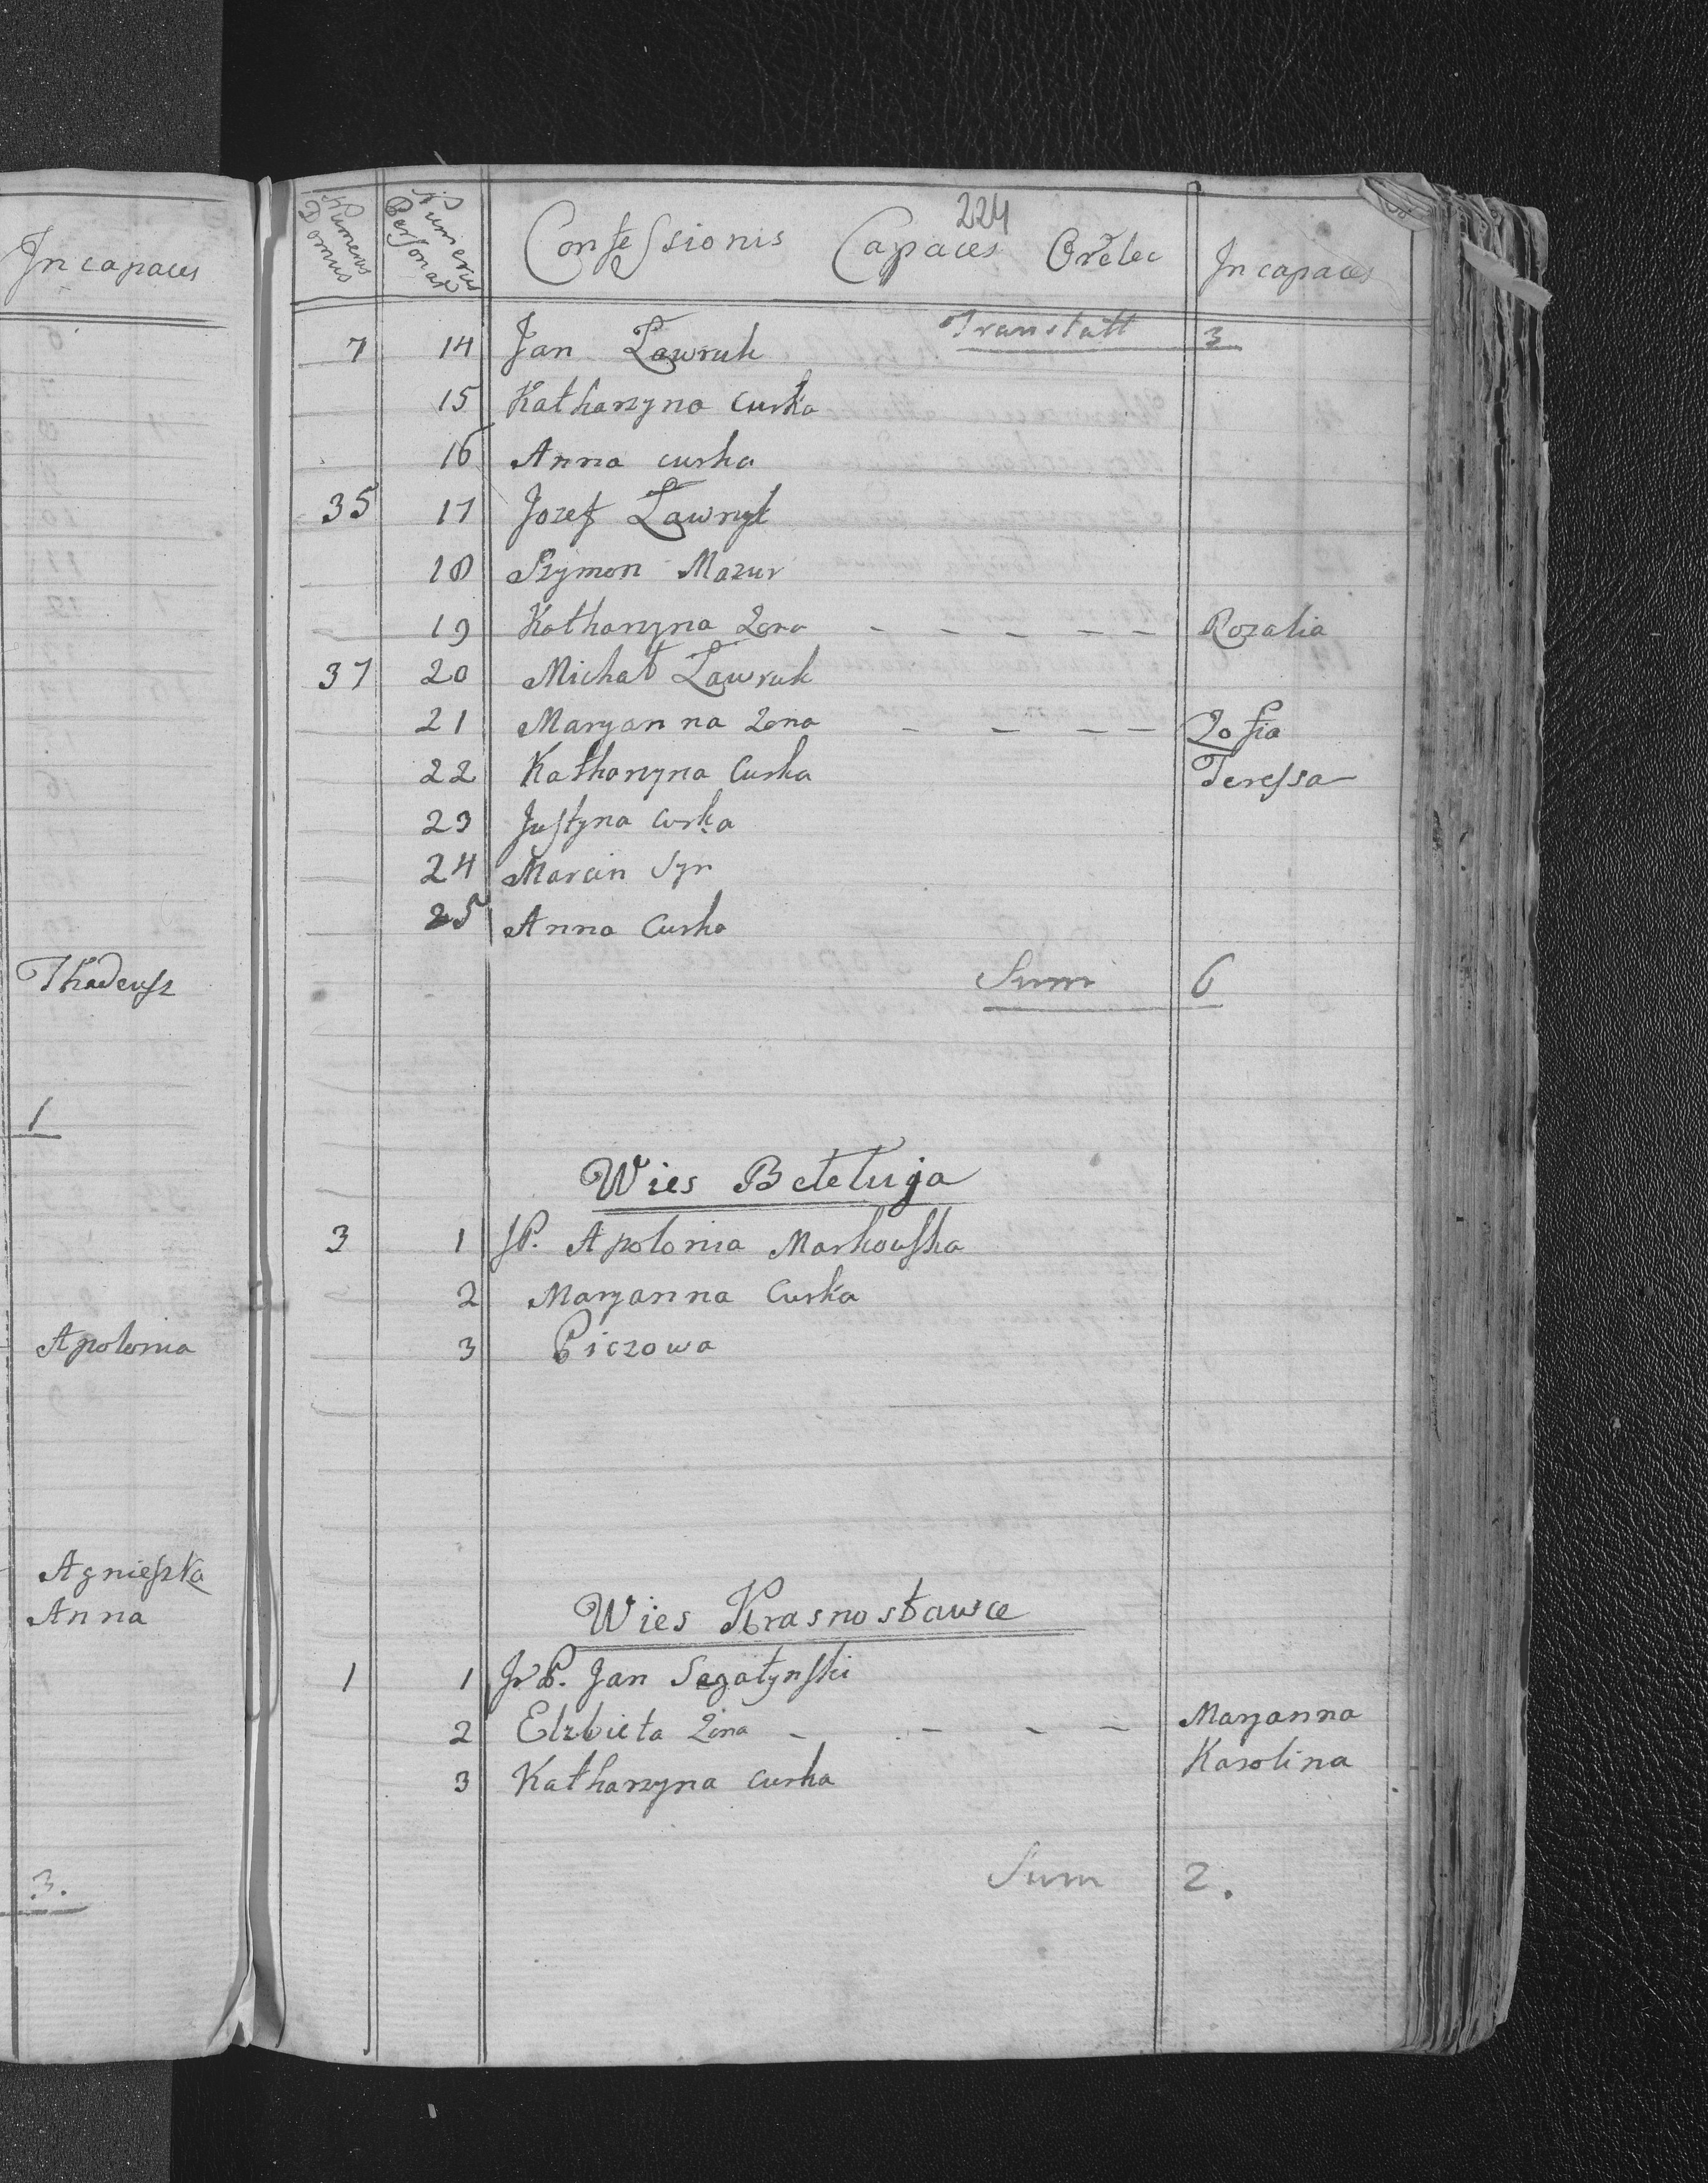 In capaces
Thadeusz
1
Apolonia
Agnieszka
Anna
3.
224
Numerus Domus Numerus Personar Confessionis Capaces Orelec In capaces
Transtatt 3
7 14 Jan Ławruk
15 Katharzyna Curka
16 Anna curka
35 17 Jozef Ławryk
18 Szymon Mazur
19 Katharzyna Zona - - - - - Rozalia
37 20 Michał Ławruk
21 Maryanna Zona - - - - Zofia
22 Katharzyna Curka Teressa
23 Justyna Curka
24 Marcin Syn
25 Anna Curka
Sum 6
Wies Bełełuja
3 1 JP. Apolonia Markowska
2 Maryanna Curka
3 Piczowa
Wies Krasnostawce
1 1 Jan Sagatynski
2 Elzbieta Zona - - - - Maryanna
3 Katharzyna curka Karolina
Sum 2.